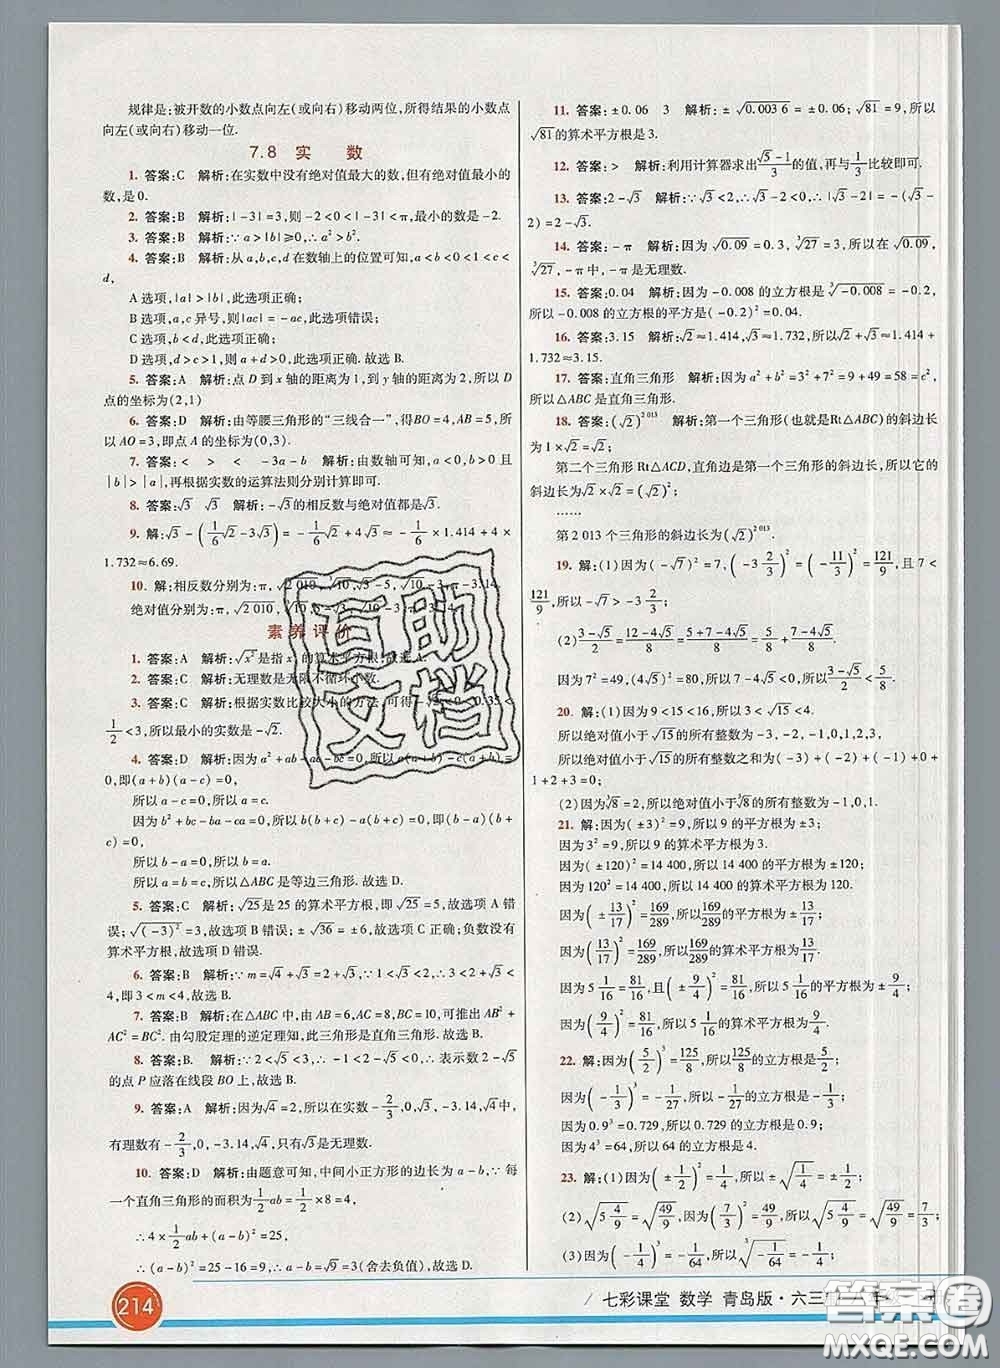 规律是:被开数的小数点向左(或向右)移动两位,所得结果的小数点
向左(或向右)移动一位.
7.8 实 数
1. 答案:C 解析:在实数中没有绝对值最大的数,但有绝对值最小的
数,是0.
2. 答案:B 解析:|-3|=3,则-2<0<|-3|<π,最小的数是-2.
3. 答案:B 解析:∵a>|b|≥0,∴a²>b².
4. 答案:B 解析:从a,b,c,d在数轴上的位置可知,a<b<0<1<c<
d,
A选项,|a|>|b|,此选项正确;
B选项,a,c异号,则|ac|=-ac,此选项错误;
C选项,b<d,此选项正确;
D选项,d>c>1,则a+d>0,此选项正确.故选B.
5. 答案:A 解析:点D到x轴的距离为1,到y轴的距离为2,所以D
点的坐标为(2,1)
6. 答案:D 解析:由等腰三角形的“三线合一”,得BO=4,AB=5,所
以AO=3,即点A的坐标为(0,3).
7. 答案:< > < -3a-b 解析:由数轴可知,a<0,b>0且
|b|>|a|,再根据实数的运算法则分别计算即可.
8. 答案:√3 √3 解析:-√3的相反数与绝对值都是√3.
9. 解:√3-(1/6√2-3√3)=-1/6√2+4√3≈-1/6×1.414+4×
1.732≈6.69.
10. 解:相反数分别为:π,√2 010,
绝对值分别为:π,√2 010,
素养评价
1. 答案:A 解析:√x²是指x²的算术平方根.故选A.
2. 答案:C 解析:无理数是无限不循环小数.
3. 答案:C 解析:根据实数比较大小的方法,可得-√2<0<0.35<
1/2<3,所以最小的实数是-√2.
4. 答案:D 解析:因为a²+ab-ac-bc=0,所以a(a+b)-c(a+b)
=0,即(a+b)(a-c)=0,
所以a-c=0,所以a=c.
因为b²+bc-ba-ca=0,所以b(b+c)-a(b+c)=0,即(b-a)(b+
c)=0,
所以b-a=0,所以b=a.
所以a=b=c,所以△ABC是等边三角形.故选D.
5. 答案:C 解析:√25是25的算术平方根,即√25=5,故选项A错
误;√(-3)²=3,故选项B错误;±√36=±6,故选项C正确;负数没有
算术平方根,故选项D错误.
6. 答案:B 解析:∵m=√4+√3=2+√3,∵1<√3<2,∴3<2+√3<
4,即3<m<4,故选B.
7. 答案:B 解析:在△ABC中,由AB=6,AC=8,BC=10,可推出AB²+
AC²=BC².由勾股定理的逆定理知,此三角形是直角三角形.故选B.
8. 答案:B. 解析:∵2<√5<3,∴-1<2-√5<0,∴表示数2-√5
的点P应落在线段BO上,故选B.
9. 答案:A 解析:因为√4=2,所以在实数-2/3,0,√3,-3.14,√4中,
有理数有-2/3,0,-3.14,√4,只有√3是无理数.
10. 答案:D 解析:由题意可知,中间小正方形的边长为a-b,∵每
一个直角三角形的面积为1/2ab=1/2×8=4,
∴4×1/2ab+(a-b)²=25,
∴(a-b)²=25-16=9,∴a-b=√9=3(舍去负值),故选D.
11. 答案:±0.06 3 解析:±√0.003 6=±0.06;√81=9,所以
√81的算术平方根是3.
12. 答案:> 解析:利用计算器求出(√5-1)/3的值,再与1/3比较即可.
13. 答案:2-√3 解析:∵√3<2,∴√3-2<0,∴|√3-2|=-(√3-
2)=2-√3.
14. 答案:-π 解析:因为√0.09=0.3,∛27=3,所以在√0.09,
∛27,-π中,-π是无理数.
15. 答案:0.04 解析:因为-0.008的立方根是∛-0.008=-0.2,
所以-0.008的立方根的平方是(-0.2)²=0.04.
16. 答案:3.15 解析:√2≈1.414,√3≈1.732,所以√2+√3≈1.414+
1.732≈3.15.
17. 答案:直角三角形 解析:因为a²+b²=3²+7²=9+49=58=c²,
所以△ABC是直角三角形.
18. 答案:(√2)²⁰¹³ 解析:第一个三角形(也就是Rt△ABC)的斜边长
为1×√2=√2;
第二个三角形Rt△ACD,直角边是第一个三角形的斜边长,所以它的
斜边长为√2×√2=(√2)²;
……
第2 013个三角形的斜边长为(√2)²⁰¹³.
19. 解:(1)因为(-√7)²=7,(-3 2/3)²=(-11/3)²=121/9,且7<
121/9,所以-√7>-3 2/3.
(2)(3-√5)/2=(12-4√5)/8=(5+7-4√5)/8,5/8=5/8,
因为7²=49,(4√5)²=80,所以7-4√5<0,所以(3-√5)/2<5/8.
20. 解:(1)因为9<15<16,所以3<√15<4.
所以绝对值小于√15的所有整数为-3,-2,-1,0,1,2,3,
所以绝对值小于√15的所有整数之和为(-3)+(-2)+(-1)+0+
1+2+3=0.
(2)因为∛8=2,所以绝对值小于∛8的所有整数为-1,0,1.
21. 解:因为(±3)²=9,所以9的平方根为±3;
因为3²=9,所以9的算术平方根为3.
因为(±120)²=14 400,所以14 400的平方根为±120;
因为120²=14 400,所以14 400的算术平方根为120.
因为(±13/17)²=169/289,所以169/289的平方根为±13/17;
因为(13/17)²=169/289,所以169/289的算术平方根为13/17.
因为5 1/16=81/16,且(±9/4)²=81/16,所以5 1/16的平方根为±9/4;
因为(9/4)²=81/16,所以5 1/16的算术平方根为9/4.
22. 解:因为(5/2)³=125/8,所以125/8的立方根为5/2;
因为(-1/3)³=-1/27,所以-1/27的立方根为-1/3;
因为0.9³=0.729,所以0.729的立方根为0.9;
因为4³=64,所以64的立方根为4.
23. 解:(1)因为(±1/2)²=1/4,所以±√1/4=±1/2;
(2)√5 4/9=√49/9,因为(7/3)²=49/9,所以√5 4/9=√49/9=7/3;
(3)因为(-1/4)³=-1/64,所以∛-1/64=-1/4;
214
七彩课堂 数学 青岛版·六三
互助文档
答案圈
MXQE.COM